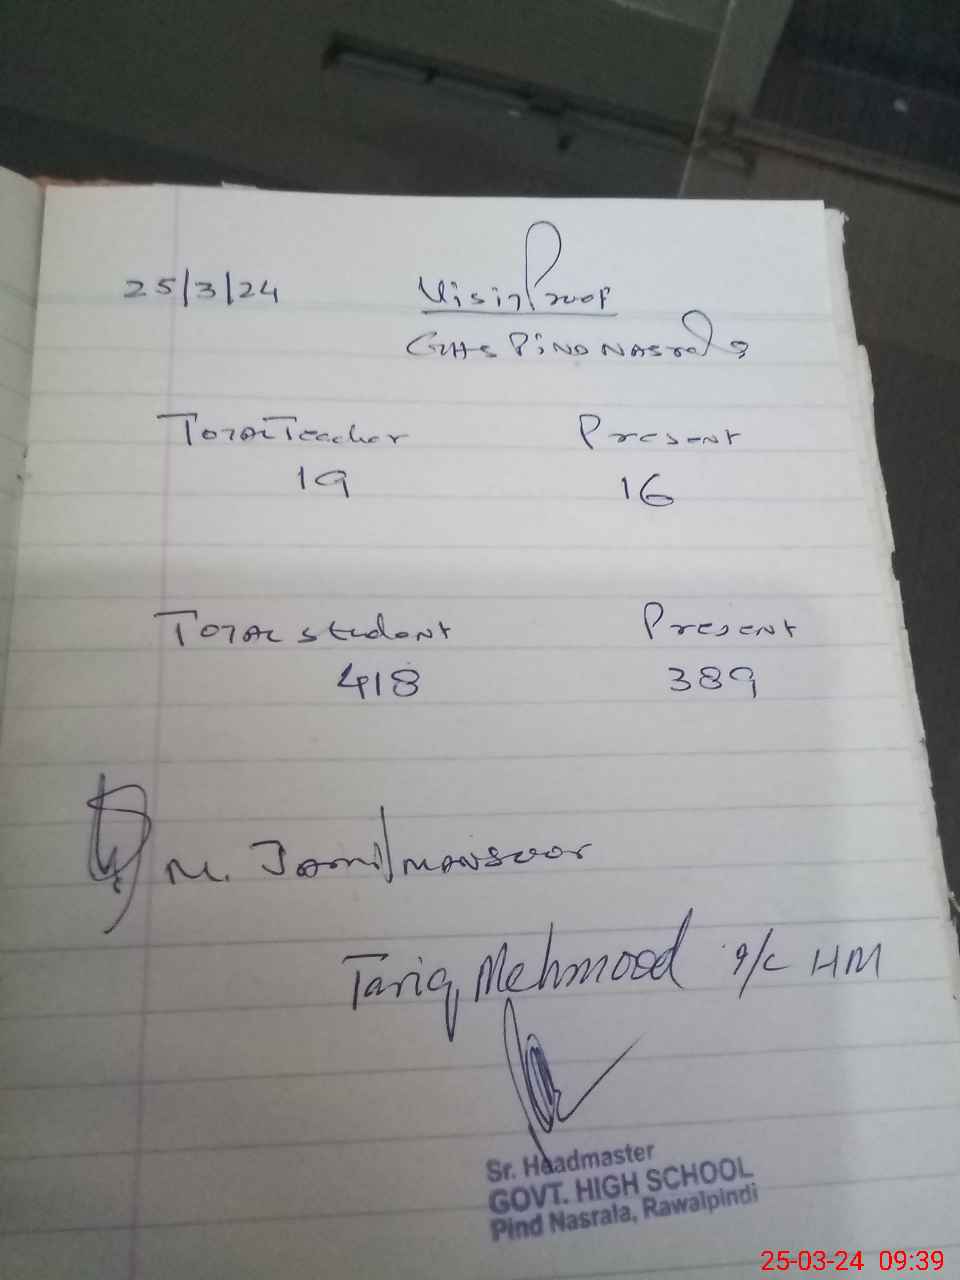 25/3/24 Visit Proof
GHS Pind Nasrala
Total Teacher Present
19 16
Total student Present
418 389
M. Jamil mansoor
Tariq Mehmood I/C HM
Sr. Headmaster
GOVT. HIGH SCHOOL
Pind Nasrala, Rawalpindi
25-03-24 09:39